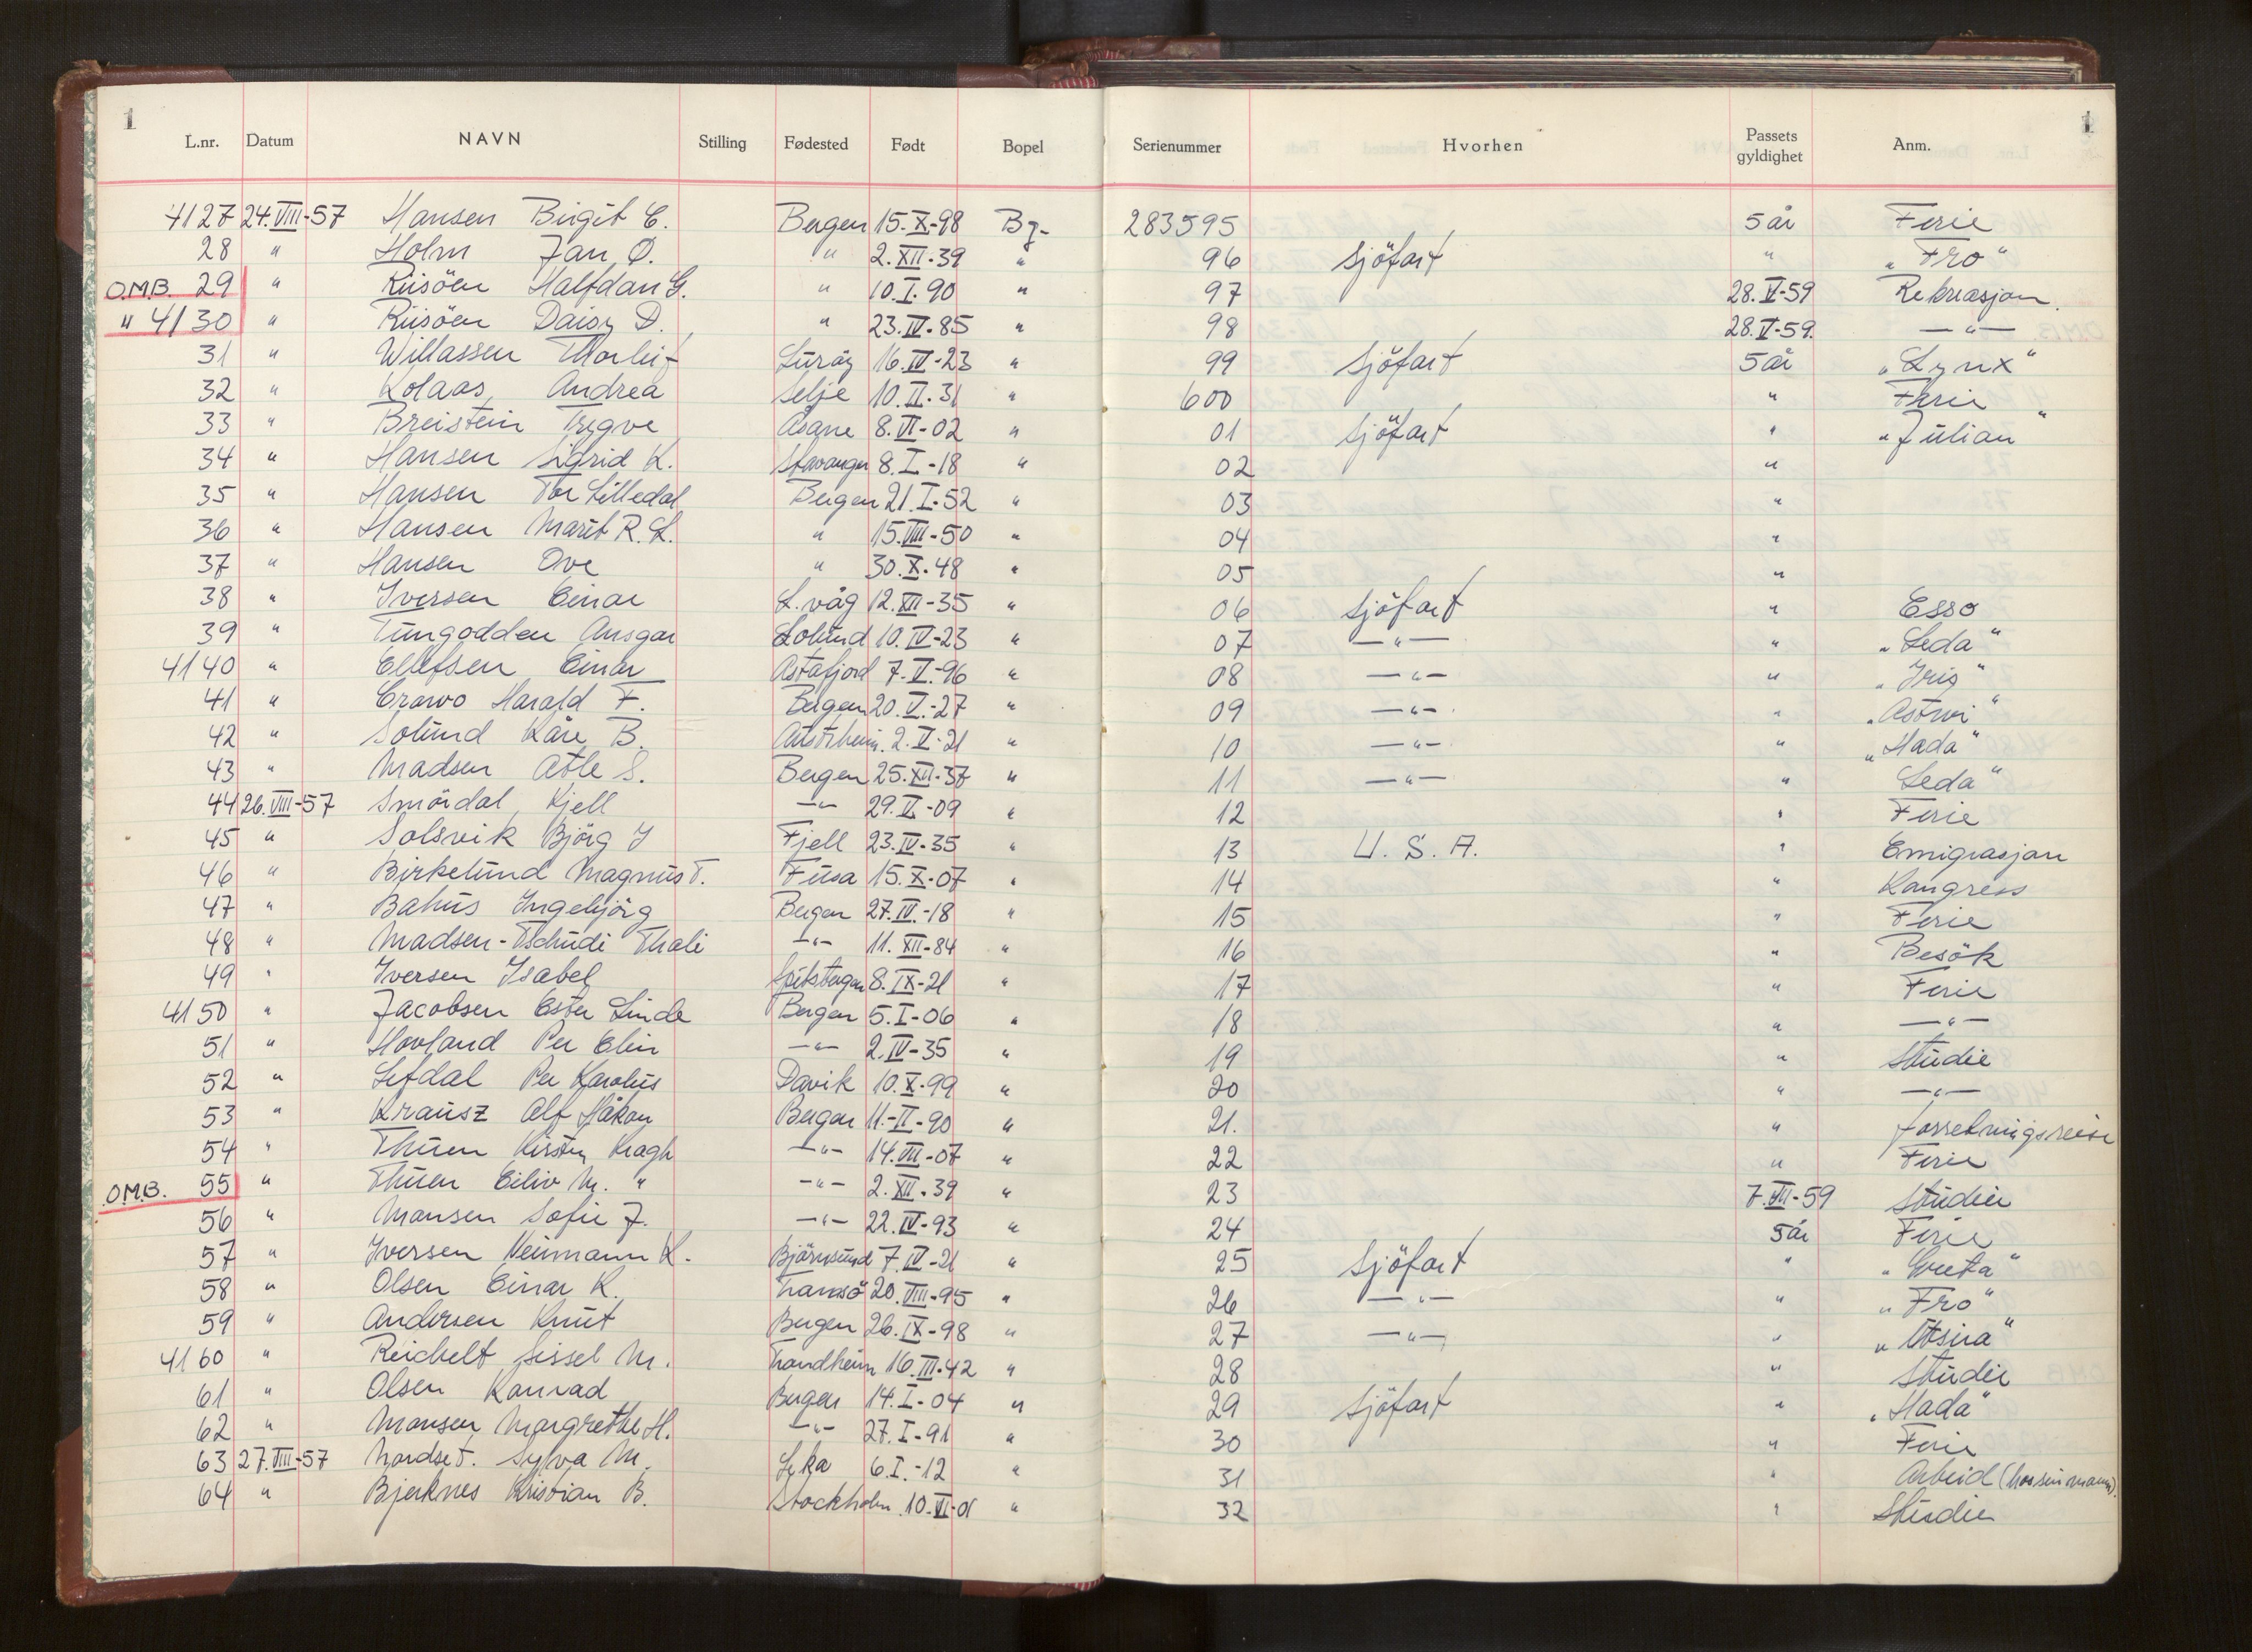 1 1
L.nr. Datum NAVN Stilling Fødested Født Bopel Serienummer Hvorhen Passets gyldighet Anm.
4127 24.VIII-57 Hansen Birgit E. Bergen 15.X-98 Bg- 283595 5 år Ferie
28 " Holm Jan Ø. " 2.XII-39 " 96 Sjöfart " "Fro"
O.M.B. 29 " Riisöen Halfdan G. " 10.I.90 " 97 28.V-59 Rekreasjon.
" 4130 " Riisöen Daisy D. " 23.IV-85 " 98 28.V-59. —"—
31 " Willassen Thorleif Luröy 16.IV-23 " 99 Sjöfart 5 år "Lynx"
32 " Kolaas, Andrea Selje 10.II.31 " 600 " Ferie
33 " Breistein Trygve Åsane 8.VI-02 " 01 Sjöfart " "Julian"
34 " Hansen Sigrid K. Stavanger 8.I-18 " 02 "
35 " Hansen Tor Lilledal Bergen 21.I-52 " 03 "
36 " Hansen Marit R. L. " 15.VIII-50 " 04 "
37 " Hansen Ove " 30.X.48 " 05 "
38 " Iversen Einar L.våg 12.XII-35 " 06 Sjöfart " Esso
39 " Tungodden Ansgar Solund 10.IV-23 " 07 —"— " "Leda"
4140 " Ellefsen Einar Astafjord 7.V.-96 " 08 —"— " "Iris"
41 " Crawo Harald F. Bergen 20.V.-27 " 09 —"— "
42 " Solund Kåre B. Austrheim. 2.V-21 " 10 —"— " "Hada"
43 " Madsen Atle S. Bergen 25.XII-37 " 11 —"— " Leda"
44 26.VIII-57 Smördal, Kjell —"— 29.V-09 " 12 " Ferie
45 " Solsvik Björg J Fjell 23.IV-35 " 13 U.S.A. " Emigrasjon
46 " Birkelund Magnus T. Fusa 15.X-07 " 14 " Kongress
47 " Bahus Ingebjörg Bergen 27.IV.-18 " 15 " Ferie
48 " Madsen-Tschudi Thali —"— 11.XII-84 " 16 " Besök
49 " Iversen Isabel Spitsbergen 8.IX-21 " 17 " Ferie
4150 " Jacobsen Ester Linde Bergen 5.I-06 " 18 " —"—
51 " Hovland Per Elin —"— 2.IV-35 " 19 " Studie
52 " Lefdal Per Karolus Davik 10.X-99 " 20 " —"—
53 " Krausz Alf Håkon Bergen 11.-II-90 " 21. " Forretningsreise
54 " Thuen Kirsten Kragh —"— 14.VII-07 " 22 " Ferie
O.M.B. 55 " Thuen Eiliv M. " —"— 2.XII.39 " 23 7.VII-59 Studier
56 " Monsen Sofie J. —"— 22.IV-93 " 24 5 år Ferie
57 " Iversen Neumann K. Björnsund 7.IV-21 " 25 Sjöfart " "Greta"
58 " Olsen Einar K. Tromsö 20.VIII-95 " 26 —"— " "Fro"
59 " Andersen Knut Bergen 26.IX-98 " 27 —"— " "Utsira"
4160 " Reichelt Sissel M. Trondheim 16.III-42 " 28 " Studie
61 " Olsen Konrad Bergen 14.I-04 " 29 Sjöfart " "Hada"
62 " Monsen Margrethe H. —"— 27.I-91 " 30 " Ferie
63 27.VIII-57 Nordset. Sylva M. Leka 6.I.-12 " 31 " Arbeid (hos sin mann).
64 " Bjerknes Kristian B. Stockholm 10.VI-01 " 32 " Studier